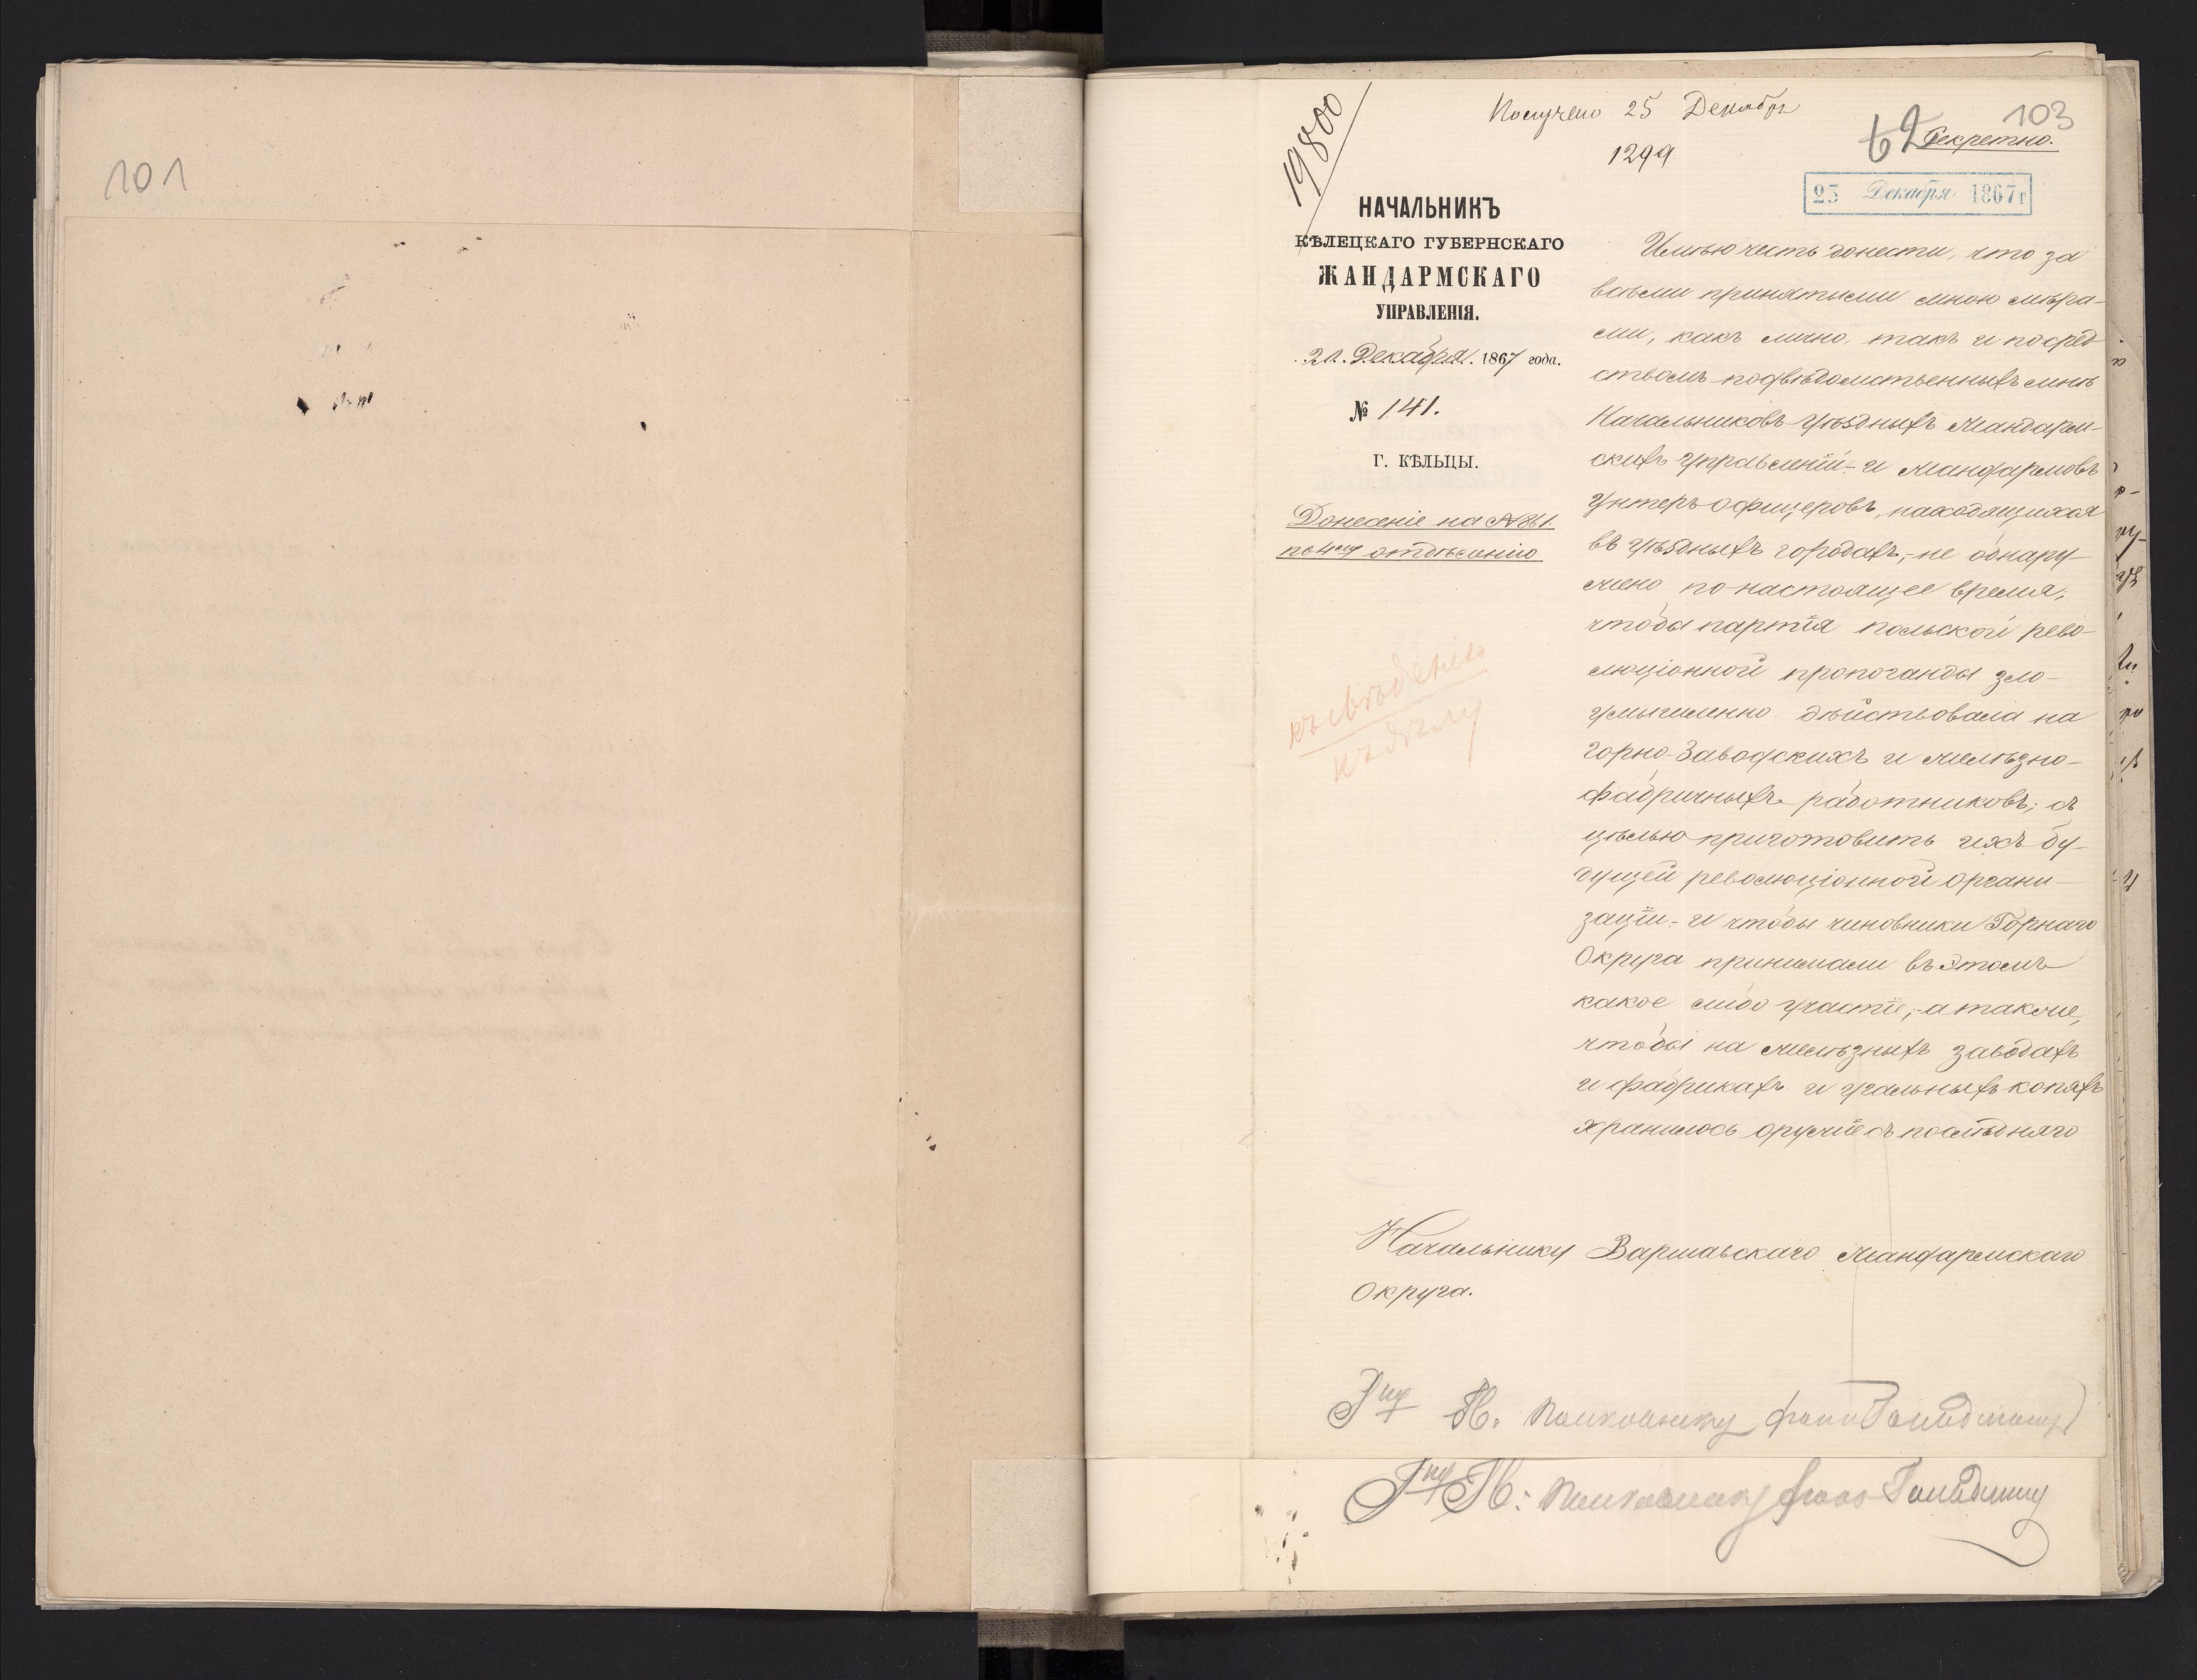 101
19800
Получено 25 Декабря
1299
103
62 Секретно.
23 Декабря 1867 г
НАЧАЛЬНИКЪ
КѢЛЕЦКАГО ГУБЕРНСКАГО
ЖАНДАРМСКАГО
УПРАВЛЕНІЯ.
Декабря. 1867 года.
№ 141.
Г. КѢЛЬЦЫ.
Донесеніе на № 861.
по 4му отдѣленію
къ свѣдѣнію
къ дѣлу
Имѣю честь донести, что за
всѣми принятыми мною мѣра-
ми, какъ лично, такъ и посред
ствомъ подвѣдомственныхъ мнѣ
Начальниковъ Уѣздныхъ Жандарм-
скихъ Управленій - и жандармовъ
Унтеръ-офицеровъ, находящихся
въ Уѣздныхъ городахъ, - не обнару-
жено по настоящее время,
чтобы партія польской рево-
люціонной пропоганды зло-
умышленно дѣйствовала на
горно-Заводскихъ и желѣзно-
фабричныхъ работниковъ, съ
цѣлью приготовить ихъ бу-
дущей революціонной органи-
заціи, - и чтобы чиновники Горнаго
Округа принимали въ этомъ
какое либо участіе, - а также,
чтобы на желѣзныхъ заводахъ
и фабрикахъ и угольныхъ копяхъ
хранилось оружіе съ послѣдняго
Начальнику Варшавскаго Жандармскаго
Округа.
Гну П. Полковнику фонъ
Гну П: Полковнику фонъ